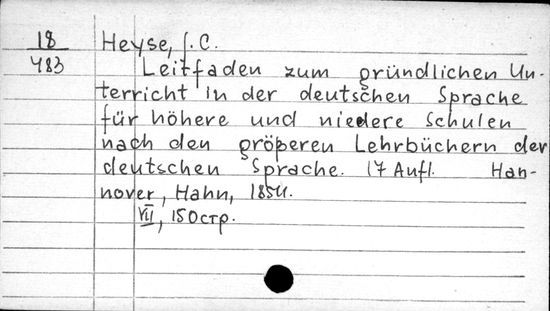 18
483
Heyse, J. C.
Leitfaden zum gründlichen Un-
terricht in der deutschen Sprache
für höhere und niedere Schulen
nach den größeren Lehrbüchern der
deutschen Sprache. 17 Aufl. Han-
nover, Hahn, 1854.
VII, 150стр.